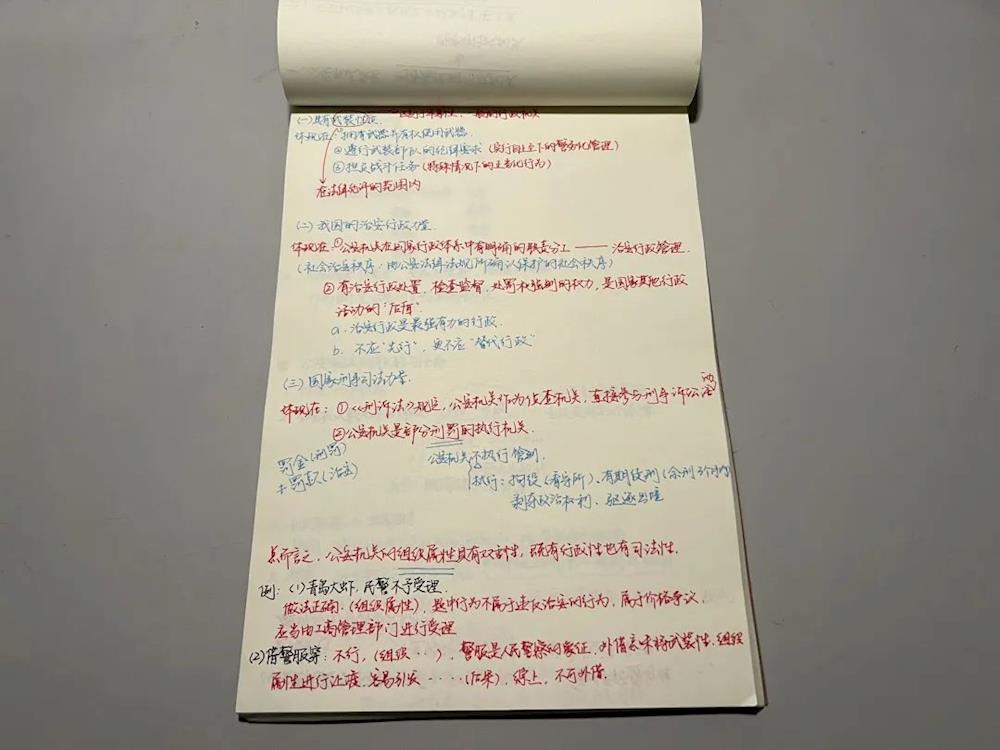 (一)具有武装性质
体现在:①拥有武器并有权使用武器.
②遵行武装部队的纪律要求(实行自上至下的警务化管理)
③担负战斗任务(特殊情况下的主务化行为)
在法律允许的范围内
(二)我国的治安行政力量
体现在:①公安机关在国家行政体系中有明确的职责分工——治安行政管理.
(社会治安秩序:由公安法律法规所确认保护的社会秩序)
②有治安行政处置,检查监督,处罚和强制的权力,是国家其他行政
活动的"后盾".
a.治安行政是最强有力的行政.
b.不应"先行",更不应"替代行政"
(三)国家刑事司法力量.
体现在:①《刑诉法》规定,公安机关作为侦查机关,直接参与刑事诉讼活动
②公安机关是部分刑罚的执行机关.
罚金(刑罚)
≠罚款(治安)
公安机关不执行管制.
执行:拘役(看守所)、有期徒刑(余刑3个月内)
剥夺政治权利、驱逐出境
总而言之,公安机关的组织属性具有双重性,既有行政性也有司法性.
例:(1)青岛大虾,民警不予受理.
做法正确.(组织属性),题中行为不属于违反治安的行为,属于价格争议,
应当由工商管理部门进行受理
(2)借警服穿:不行,(组织···),警服是人民警察的象征,外借会将武装性,组织
属性进行让渡,容易引发·····(后果),综上,不可外借.